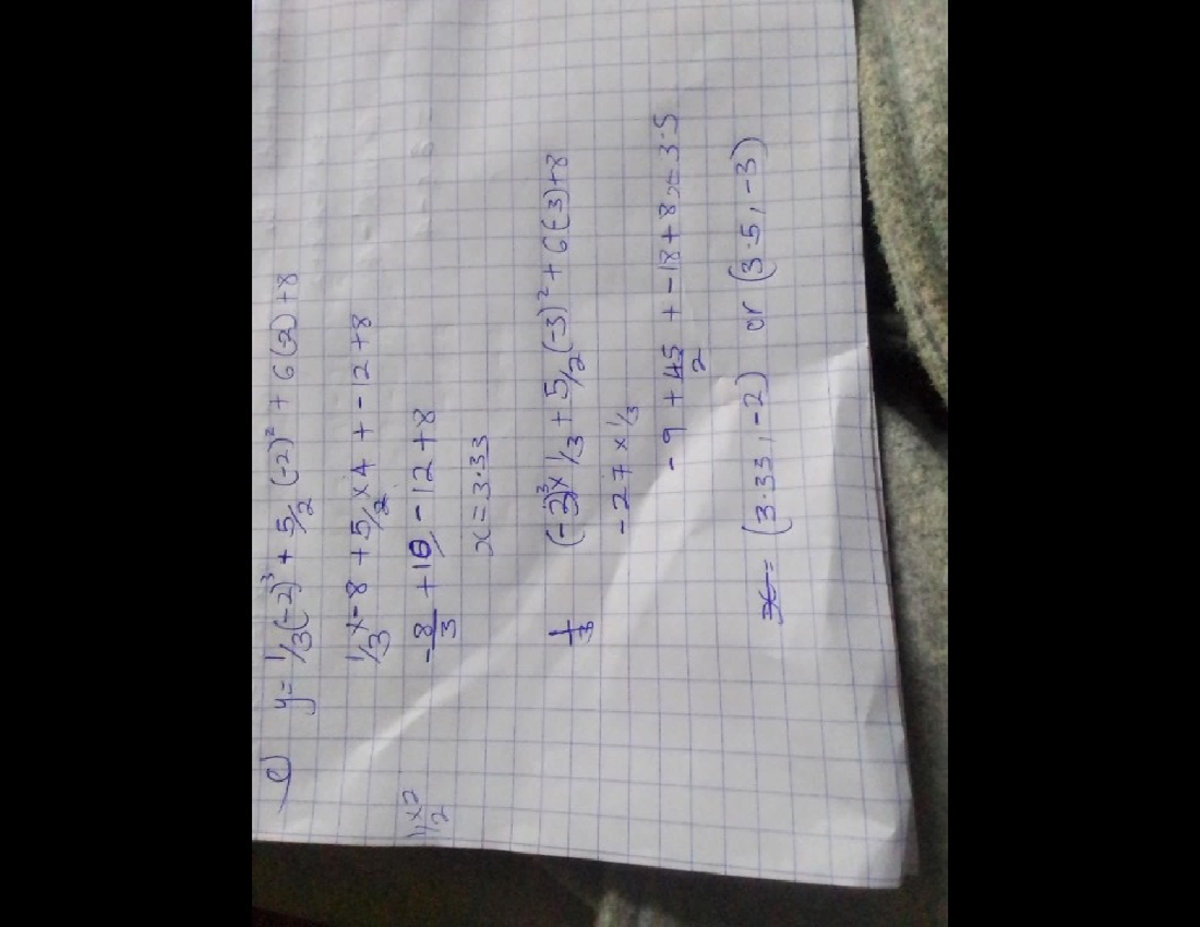 e) y = 1/3(-2)³ + 5/2 (-2)² + 6(-2) + 8
1/3 x -8 + 5/2 x 4 + -12 + 8
-8/3 + 10 - 12 + 8
1/2 x 2
x = 3.33
1/3 (-3)³ x 1/3 + 5/2 (-3)² + 6(-3) + 8
-27 x 1/3
-9 + 45/2 + -18 + 8 x = 3.5
x = (3.33, -2) or (3.5, -3)